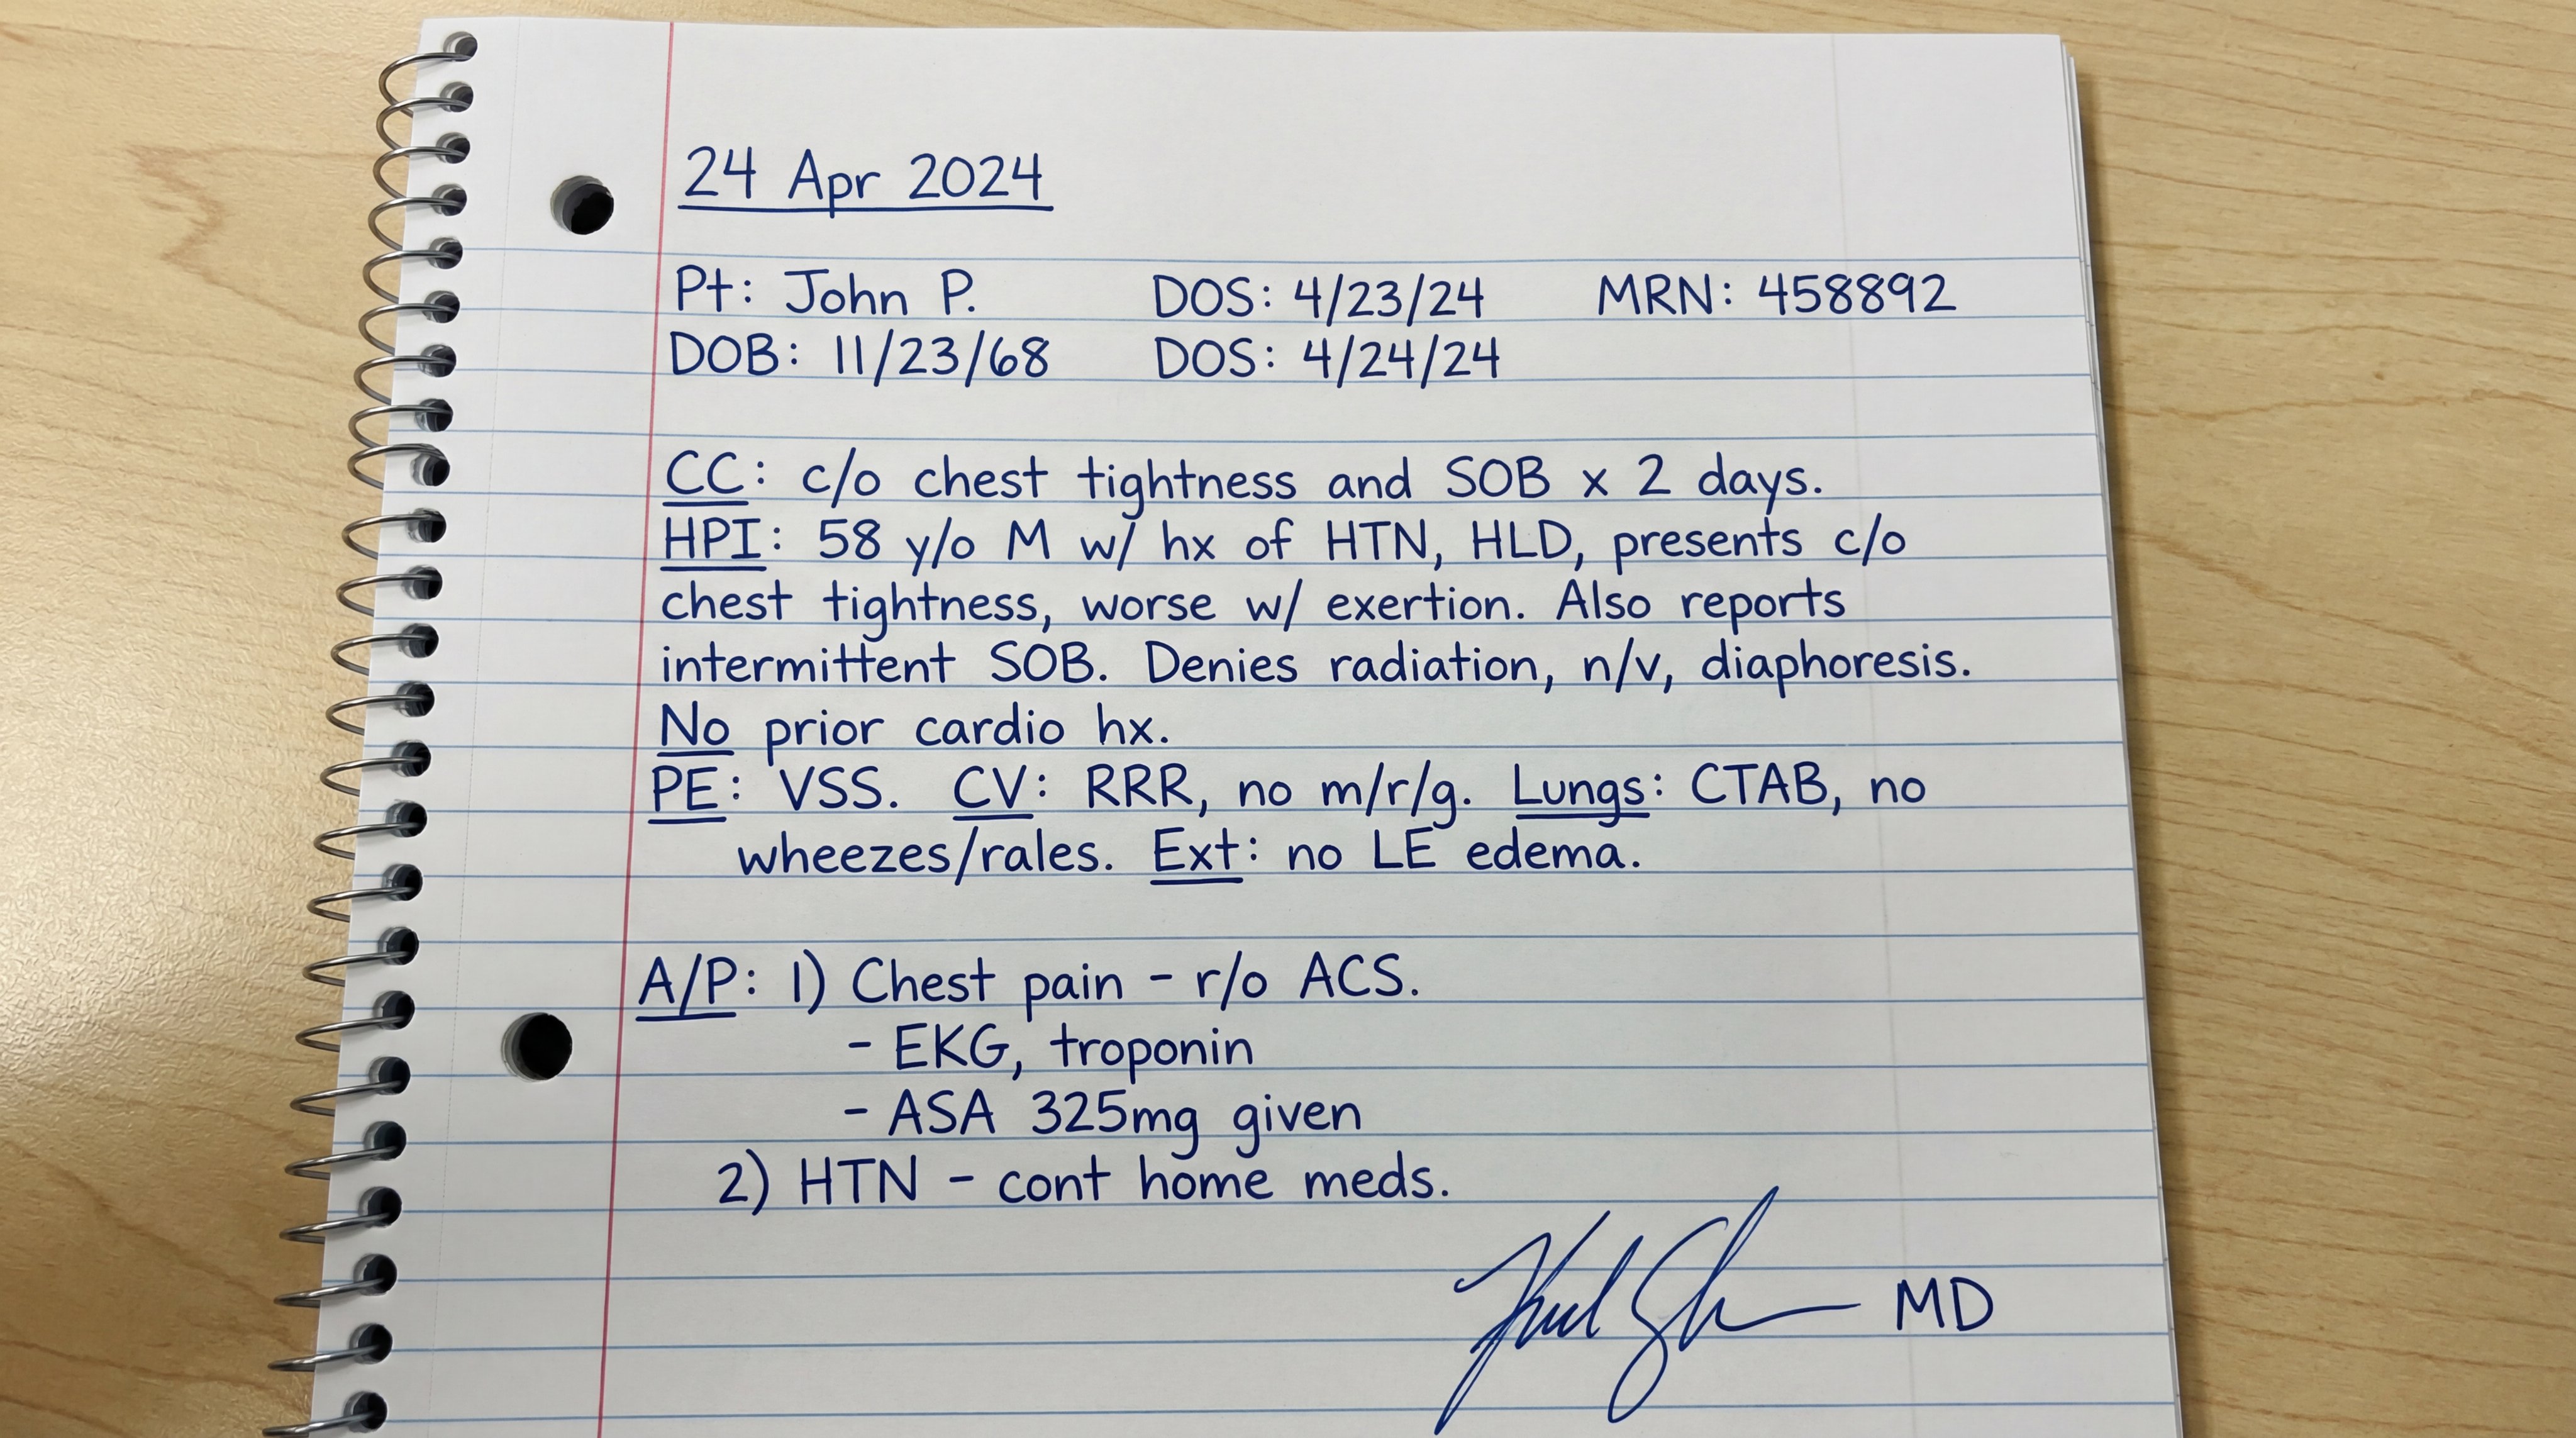 24 Apr 2024
Pt: John P. DOS: 4/23/24 MRN: 458892
DOB: 11/23/68 DOS: 4/24/24
CC: c/o chest tightness and SOB x 2 days.
HPI: 58 y/o M w/ hx of HTN, HLD, presents c/o
chest tightness, worse w/ exertion. Also reports
intermittent SOB. Denies radiation, n/v, diaphoresis.
No prior cardio hx.
PE: VSS. CV: RRR, no m/r/g. Lungs: CTAB, no
wheezes/rales. Ext: no LE edema.
A/P: 1) Chest pain - r/o ACS.
- EKG, troponin
- ASA 325mg given
2) HTN - cont home meds.
MD